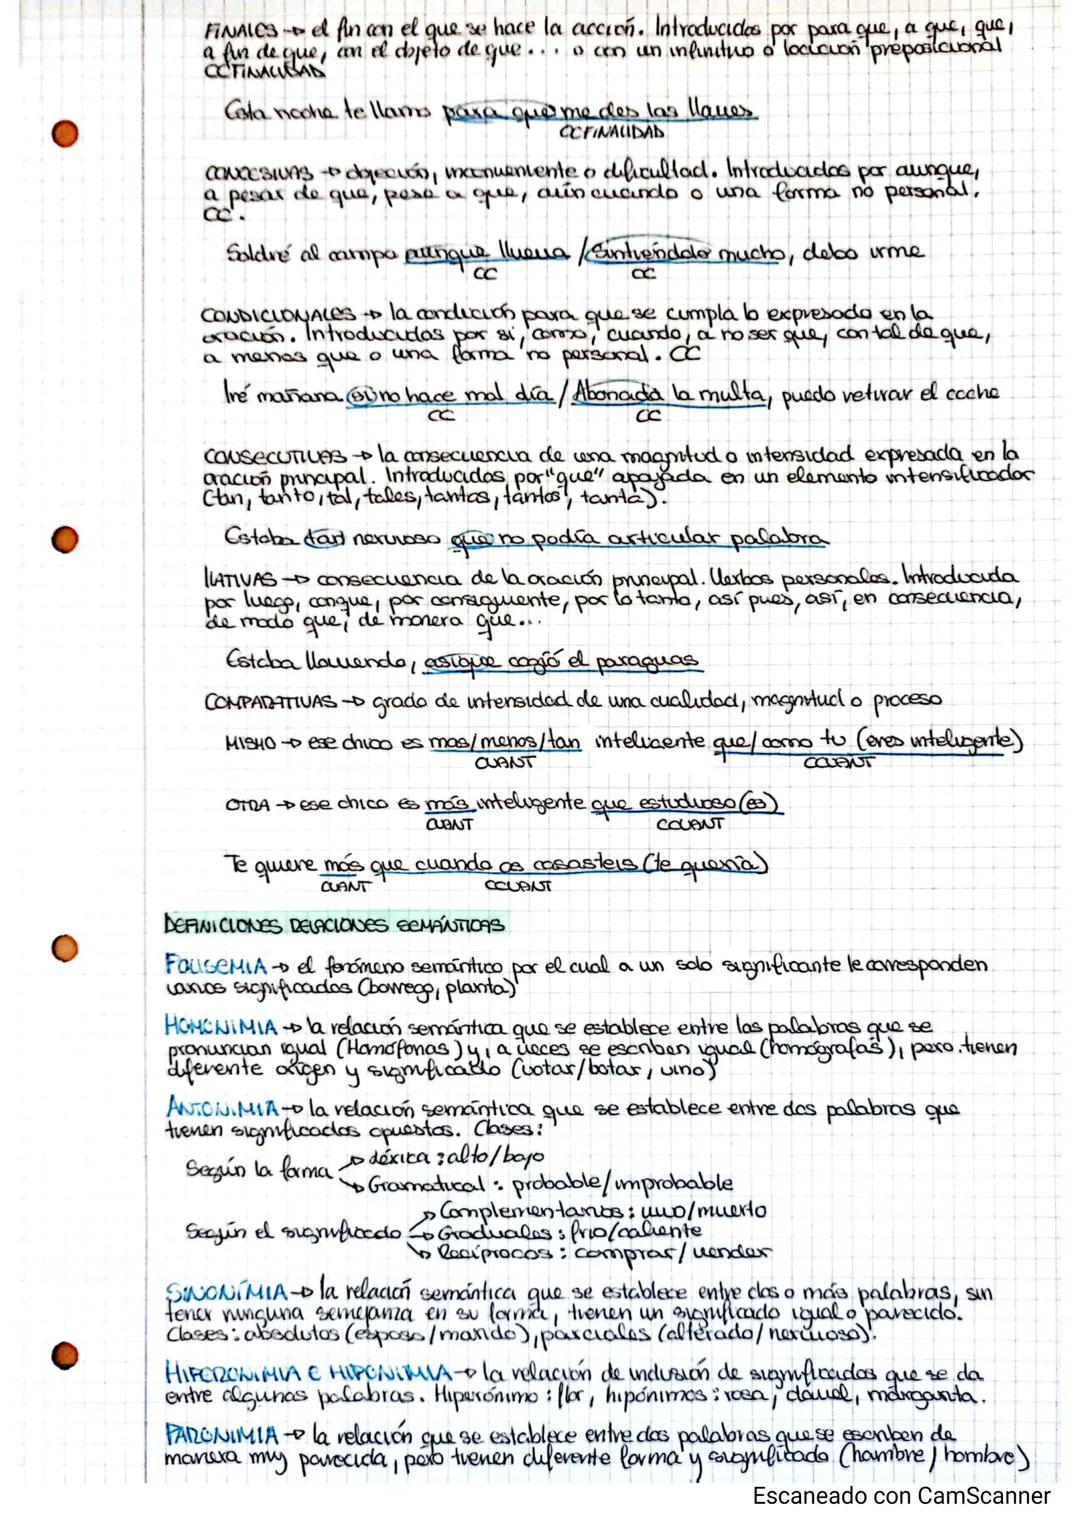 FINALES → el fin con el que se hace la acción. Introducidas por para que, a que, que,
a fin de que, con el objeto de que... o con un infinitivo o locución preposicional
CCFINALIDAD
Esta noche te llamo para que me des las llaves
CCFINALIDAD
CONCESIVAS → objeción, inconveniente o dificultad. Introducidas por aunque,
a pesar de que, pese a que, aún cuando o una forma no personal.
CC.
Saldré al campo aunque llueva / Sintiéndolo mucho, debo irme
CC CC
CONDICIONALES → la condición para que se cumpla lo expresado en la
oración. Introducidas por si, como, cuando, a no ser que, con tal de que,
a menos que o una forma no personal. CC
Iré mañana si no hace mal día / Abonada la multa, puedo retirar el coche
CC CC
CONSECUTIVAS → la consecuencia de una magnitud o intensidad expresada en la
oración principal. Introducidas por "que" apoyada en un elemento intensificador
(tan, tanto, tal, tales, tantas, tantos, tanta).
Estaba tan nervioso que no podía articular palabra
ILATIVAS → consecuencia de la oración principal. Verbos personales. Introducida
por luego, conque, por consiguiente, por lo tanto, así pues, así, en consecuencia,
de modo que, de manera que...
Estaba lloviendo, asique cogió el paraguas
COMPARATIVAS → grado de intensidad de una cualidad, magnitud o proceso
MISMO → ese chico es mas/menos/tan inteligente que/como tu (eres inteligente)
CUANT CCUANT
OTRA → ese chico es más inteligente que estudioso (es)
CUANT CCUANT
Te quiere más que cuando os casasteis (te quería)
CUANT CCUANT
DEFINICIONES RELACIONES SEMÁNTICAS
POLISEMIA → el fenómeno semántico por el cual a un solo significante le corresponden
varios significados (borrego, planta)
HOMONIMIA → la relación semántica que se establece entre las palabras que se
pronuncian igual (Homófonas) y, a veces se escriben igual (homógrafas), pero tienen
diferente origen y significado (votar/botar, vino)
ANTONIMIA → la relación semántica que se establece entre dos palabras que
tienen significados opuestos. Clases:
Según la forma → léxica: alto/bajo
→ Gramatical: probable/improbable
→ Complementarios: vivo/muerto
Según el significado → Graduales: frio/caliente
→ Recíprocos: comprar/vender
SINONÍMIA → la relación semántica que se establece entre dos o más palabras, sin
tener ninguna semejanza en su forma, tienen un significado igual o parecido.
Clases: absolutos (esposo/marido), parciales (alterado/nervioso).
HIPERONIMIA E HIPONIMIA → la relación de inclusión de significados que se da
entre algunas palabras. Hiperónimo: flor, hipónimos: rosa, clavel, margarita.
PARONIMIA → la relación que se establece entre dos palabras que se escriben de
manera muy parecida, pero tienen diferente forma y significado (hambre/hombre)
Escaneado con CamScanner